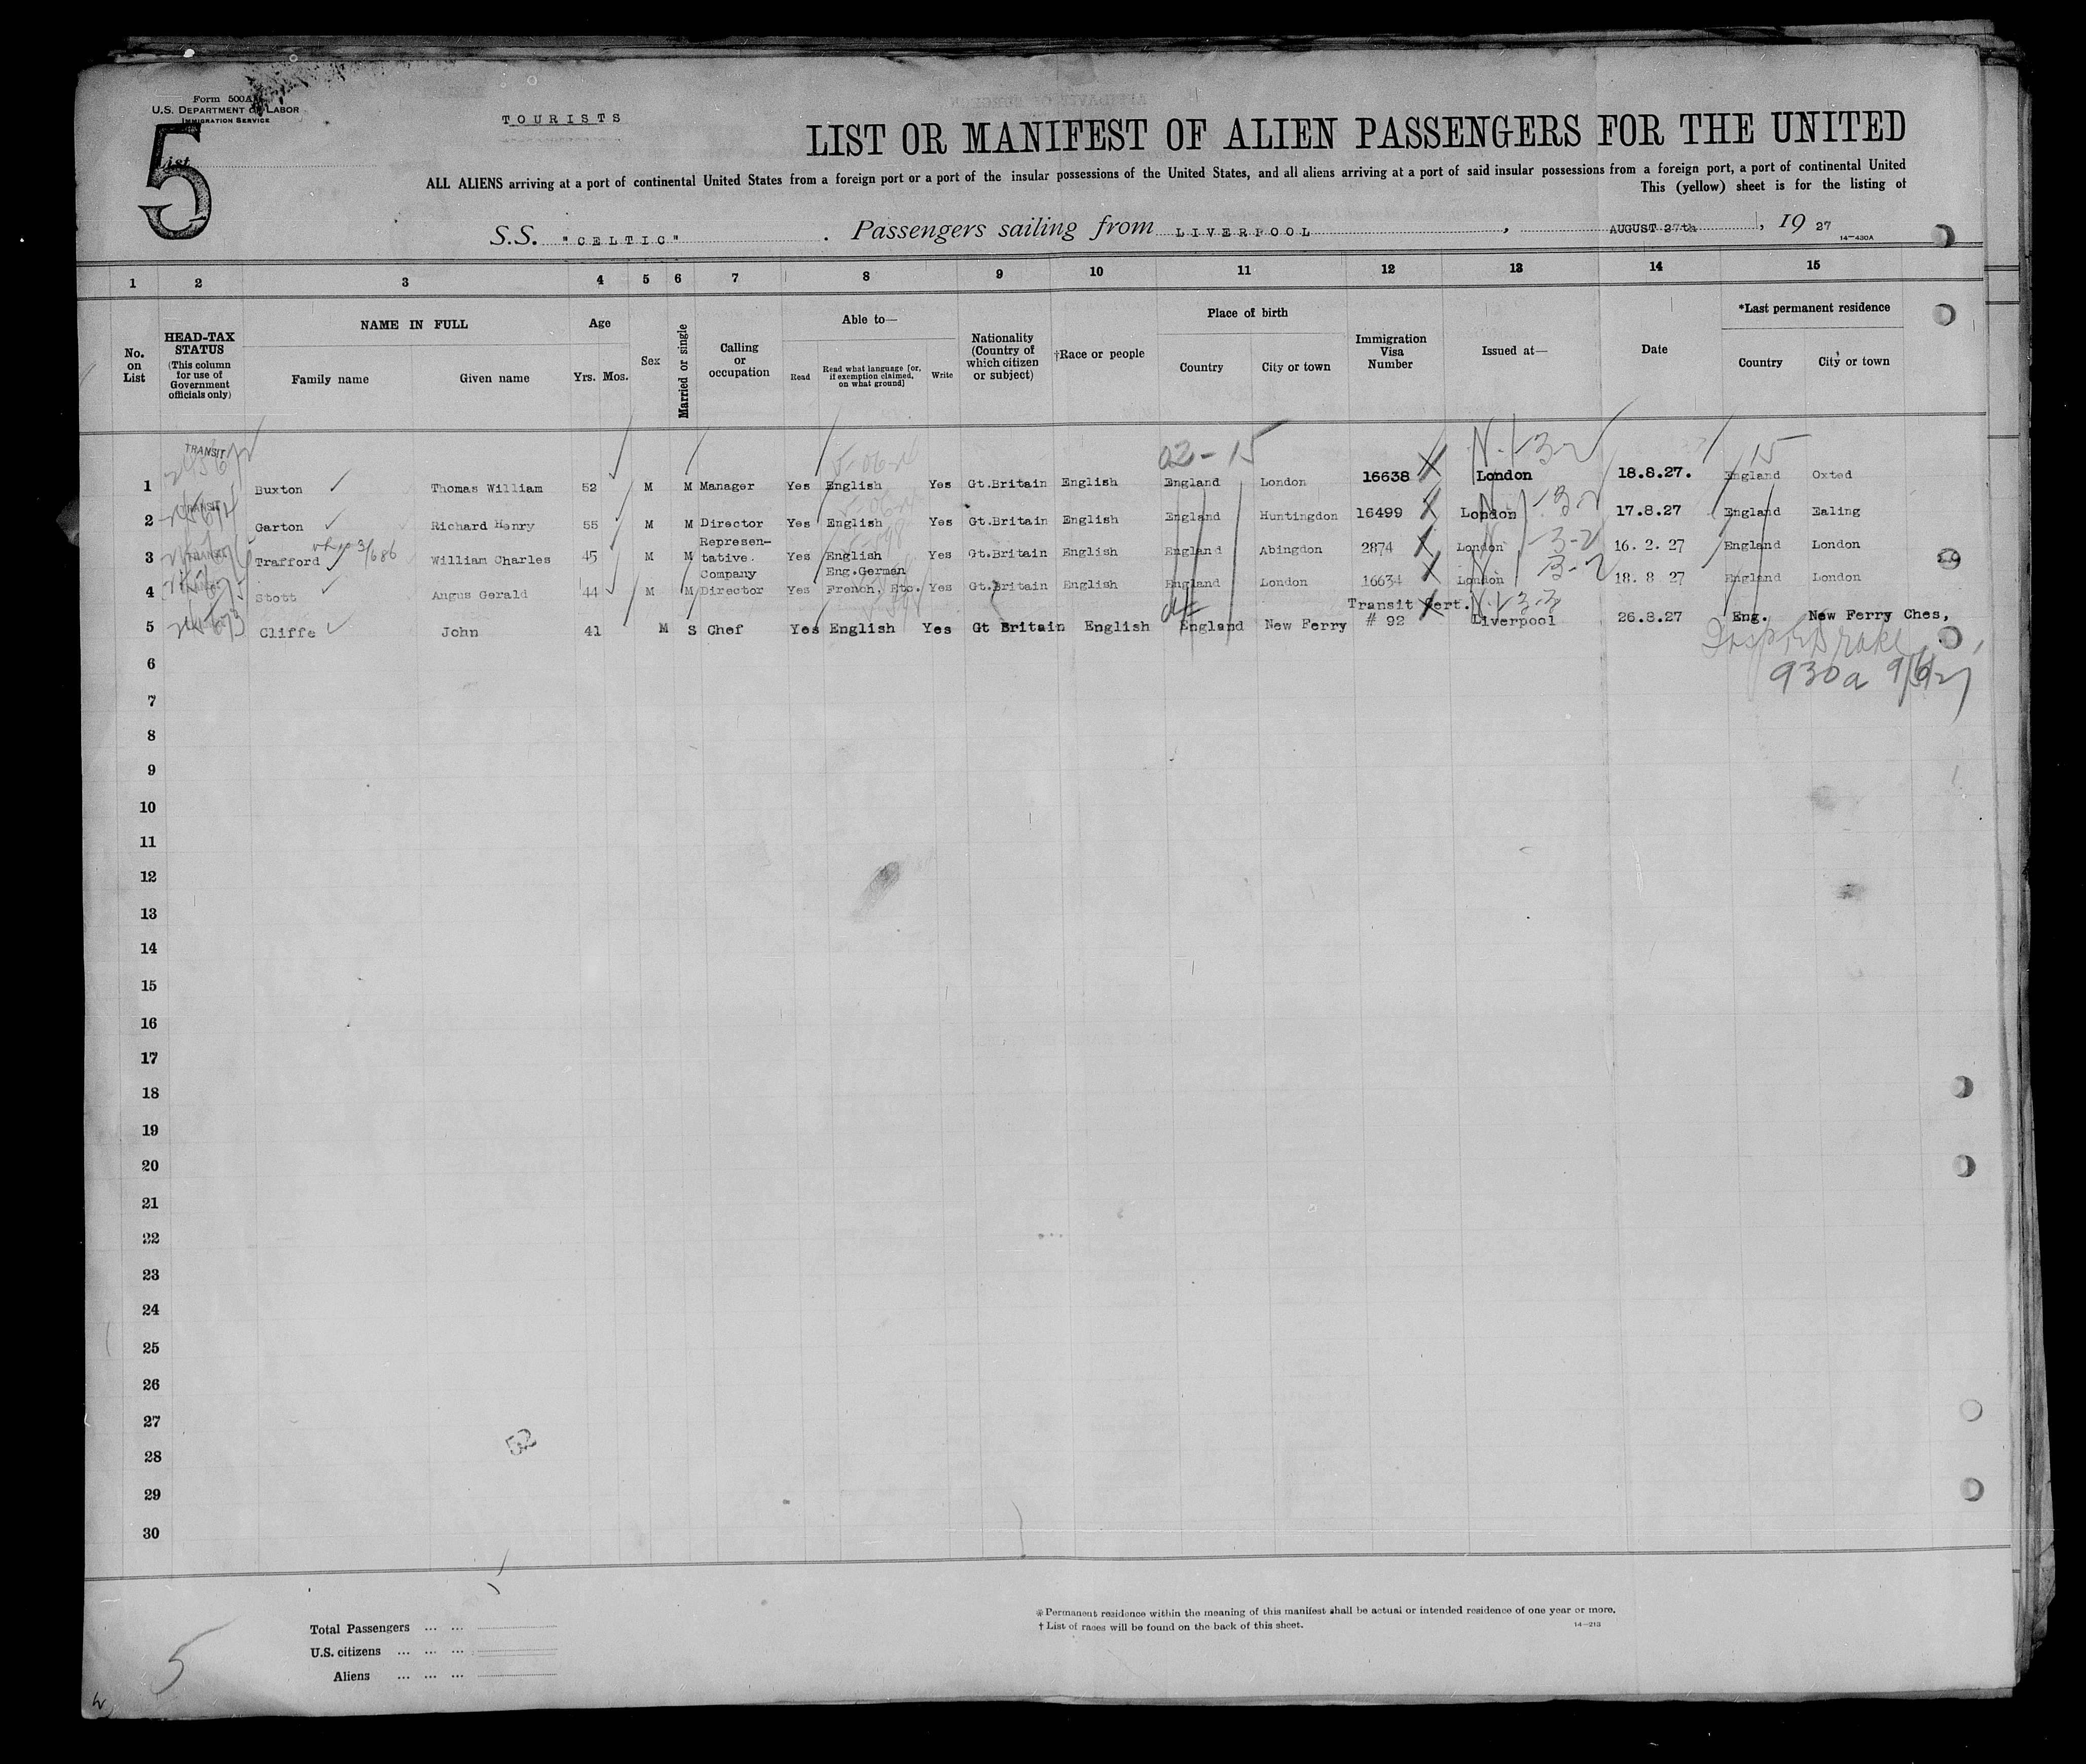 Form 500A
U.S. DEPARTMENT OF LABOR
IMMIGRATION SERVICE
List
5
TOURISTS
LIST OR MANIFEST OF ALIEN PASSENGERS FOR THE UNITED
ALL ALIENS arriving at a port of continental United States from a foreign port or a port of the insular possessions of the United States, and all aliens arriving at a port of said insular possessions from a foreign port, a port of continental United
This (yellow) sheet is for the listing of
S.S. "CELTIC" . Passengers sailing from LIVERPOOL , AUGUST 27th , 19 27
14—430A
1 2 3 4 5 6 7 8 9 10 11 12 13 14 15
No. on List
HEAD-TAX STATUS (This column for use of Government officials only)
NAME IN FULL
Family name Given name
Age
Yrs. Mos.
Sex
Married or single
Calling or occupation
Able to—
Read
Read what language [or, if exemption claimed, on what ground]
Write
Nationality (Country of which citizen or subject)
†Race or people
Place of birth
Country City or town
Immigration Visa Number
Issued at—
Date
*Last permanent residence
Country City or town
02-15 15
TRANSIT
1 Buxton Thomas William 52 M M Manager Yes English Yes Gt.Britain English England London 16638 London 18.8.27. England Oxted
TRANSIT
2 Garton Richard Henry 55 M M Director Yes English Yes Gt.Britain English England Huntingdon 16499 London 17.8.27 England Ealing
TRANSIT
3 Trafford William Charles 45 M M Representative. Yes English Yes Gt.Britain English England Abingdon 2874 London 16. 2. 27 England London
4 Stott Angus Gerald 44 M M Company Director Yes Eng.German French, Etc. Yes Gt.Britain English England London 16634 London 18. 8 27 England London
5 Cliffe John 41 M S Chef Yes English Yes Gt Britain English England New Ferry Transit Cert. # 92 Liverpool 26.8.27 Eng. New Ferry Ches,
930a 9/6/27
6
7
8
9
10
11
12
13
14
15
16
17
18
19
20
21
22
23
24
25
26
27
28
29
30
52
Total Passengers ... ...
U.S. citizens ... ... ...
Aliens ... ... ...
* Permanent residence within the meaning of this manifest shall be actual or intended residence of one year or more.
† List of races will be found on the back of this sheet.
14—213
5